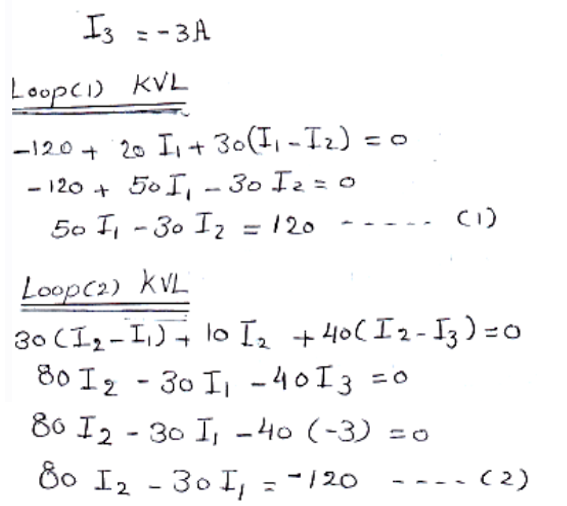 I₃ = -3A
Loop(1) KVL
-120 + 20 I₁ + 30(I₁ - I₂) = 0
-120 + 50 I₁ - 30 I₂ = 0
50 I₁ - 30 I₂ = 120 ----- (1)
Loop(2) KVL
30(I₂ - I₁) + 10 I₂ + 40(I₂ - I₃) = 0
80 I₂ - 30 I₁ - 40 I₃ = 0
80 I₂ - 30 I₁ - 40 (-3) = 0
80 I₂ - 30 I₁ = -120 ---- (2)